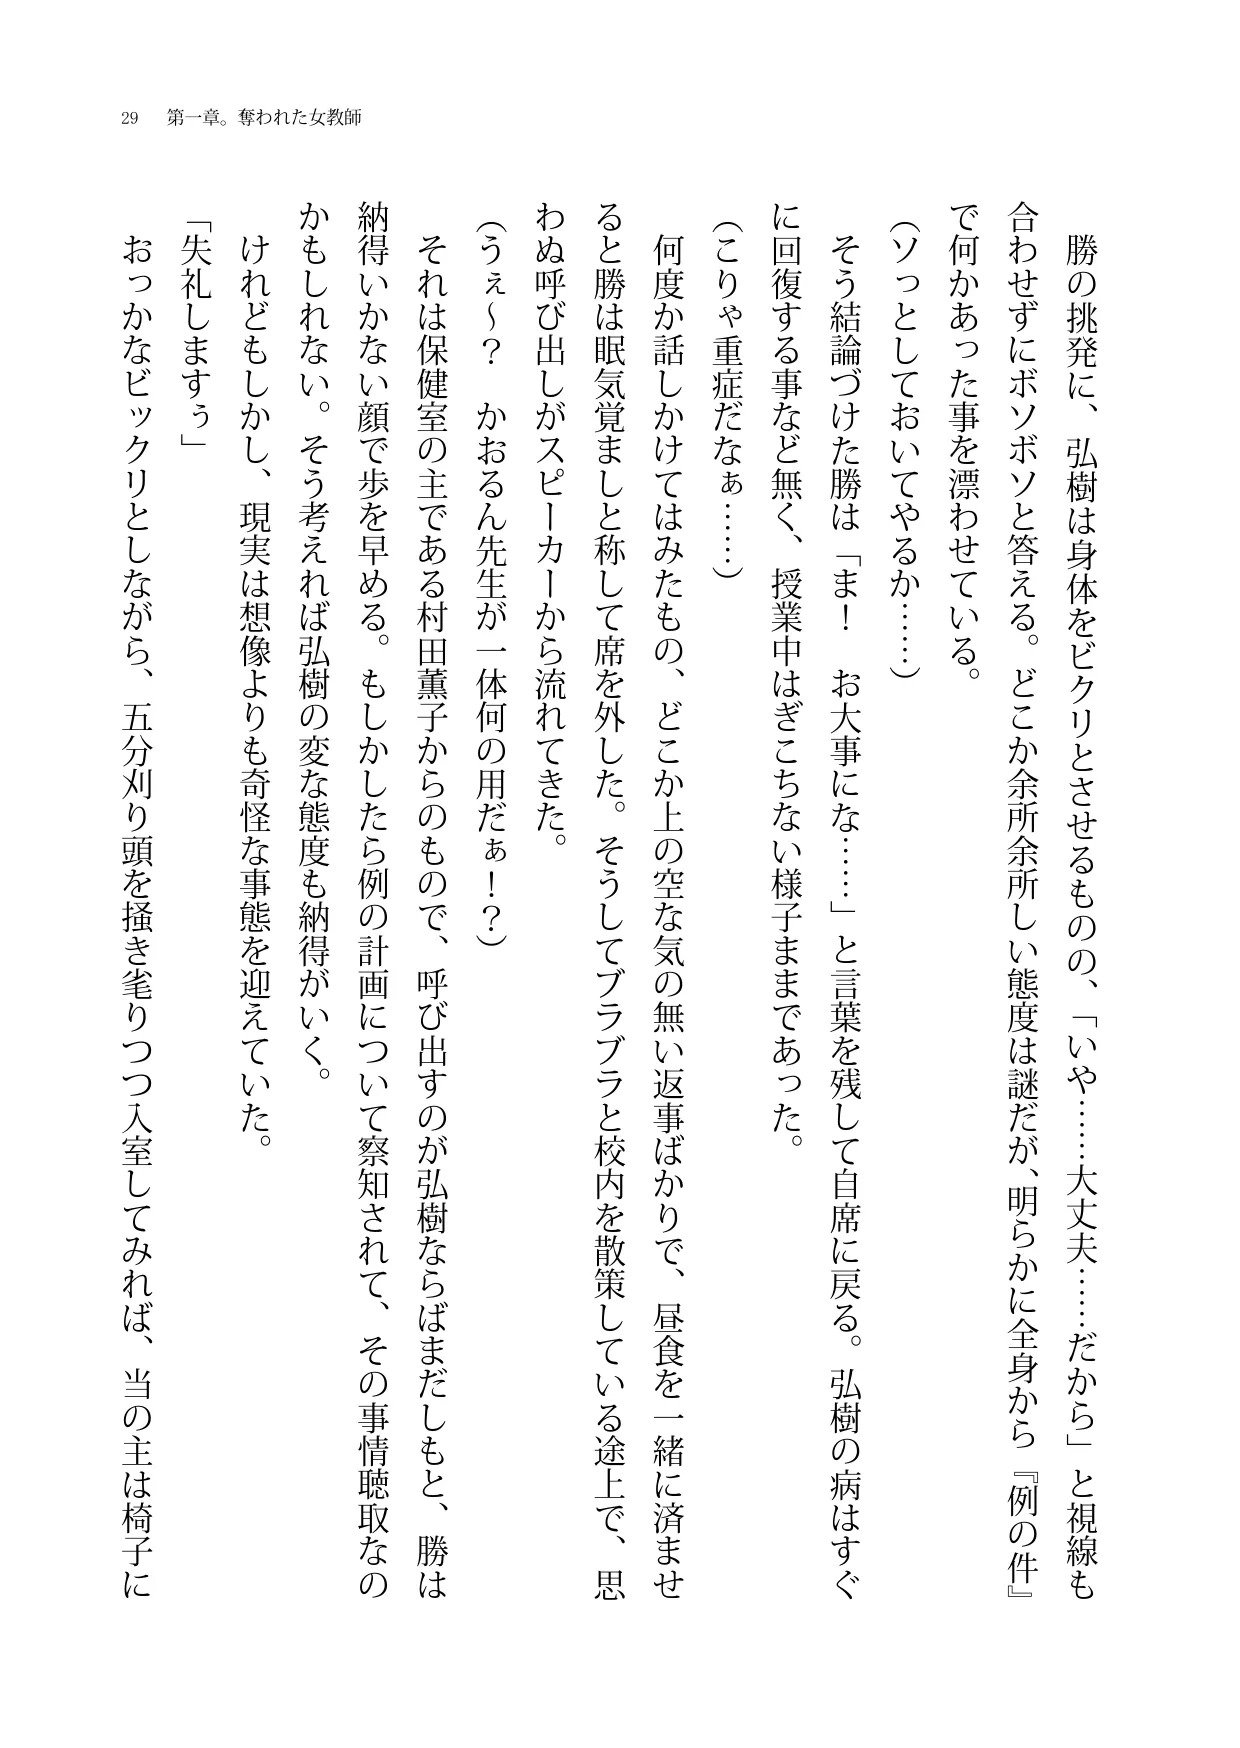 29 第一章。奪われた女教師
　勝の挑発に、弘樹は身体をビクリとさせるものの、「いや……大丈夫……だから」と視線も
合わせずにボソボソと答える。どこか余所余所しい態度は謎だが、明らかに全身から『例の件』
で何かあった事を漂わせている。
（ソっとしておいてやるか……）
　そう結論づけた勝は「ま！　お大事にな……」と言葉を残して自席に戻る。弘樹の病はすぐ
に回復する事など無く、授業中はぎこちない様子ままであった。
（こりゃ重症だなぁ……）
　何度か話しかけてはみたもの、どこか上の空な気の無い返事ばかりで、昼食を一緒に済ませ
ると勝は眠気覚ましと称して席を外した。そうしてブラブラと校内を散策している途上で、思
わぬ呼び出しがスピーカーから流れてきた。
（うぇ～？　かおるん先生が一体何の用だぁ！？）
　それは保健室の主である村田薫子からのもので、呼び出すのが弘樹ならばまだしもと、勝は
納得いかない顔で歩を早める。もしかしたら例の計画について察知されて、その事情聴取なの
かもしれない。そう考えれば弘樹の変な態度も納得がいく。
　けれどもしかし、現実は想像よりも奇怪な事態を迎えていた。
「失礼しますぅ」
　おっかなビックリとしながら、五分刈り頭を掻き毟りつつ入室してみれば、当の主は椅子に